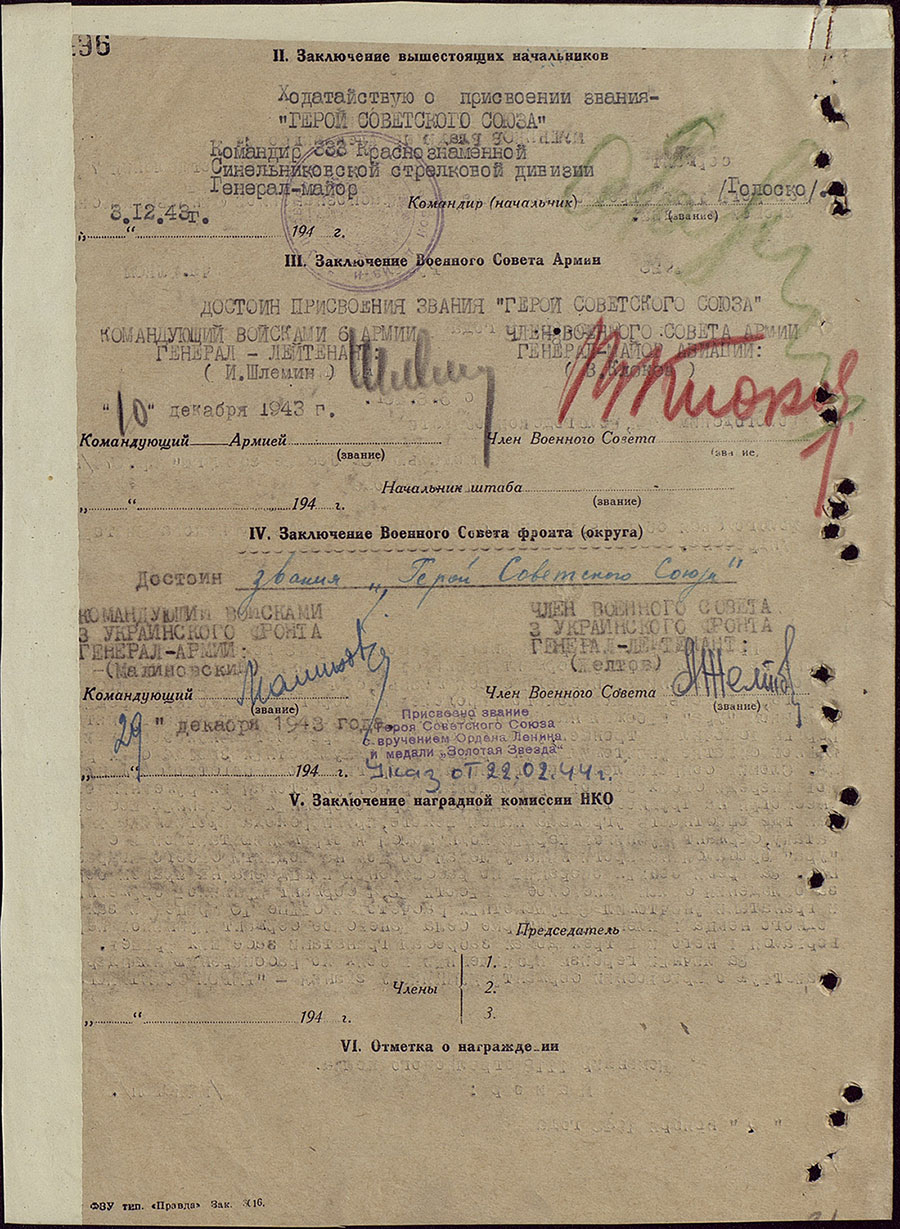 96
II. Заключение вышестоящих начальников
Ходатайствую о присвоении звания-
"ГЕРОЙ СОВЕТСКОГО СОЮЗА"
Командир 333 Краснознаменной
Синельниковской стрелковой дивизии
Генерал-майор
Командир (начальник) /Голоско/
(звание)
3.12.43г.
„ “ 194 г.
III. Заключение Военного Совета Армии
ДОСТОИН ПРИСВОЕНИЯ ЗВАНИЯ "ГЕРОЙ СОВЕТСКОГО СОЮЗА"
КОМАНДУЮЩИЙ ВОЙСКАМИ 6 АРМИИ ЧЛЕН ВОЕННОГО СОВЕТА АРМИИ
ГЕНЕРАЛ - ЛЕЙТЕНАНТ: ГЕНЕРАЛ-МАЙОР АВИАЦИИ:
( И.Шлемин )
"10" декабря 1943 г.
Командующий Армией Член Военного Совета
(звание) (зва ие,
Начальник штаба
„ “ 194 г. (звание)
IV. Заключение Военного Совета фронта (округа)
Достоин звания „Герой Советского Союза"
КОМАНДУЮЩИЙ ВОЙСКАМИ ЧЛЕН ВОЕННОГО СОВЕТА
3 УКРАИНСКОГО ФРОНТА 3 УКРАИНСКОГО ФРОНТА
ГЕНЕРАЛ-АРМИИ: ГЕНЕРАЛ-ЛЕЙТЕНАНТ:
(Малиновский (Желтов)
Командующий Малиновский Член Военного Совета АЖелтов
(звание) (звание)
29 " декабря 1943 года.
Присвоено звание
Героя Советского Союза
с вручением Ордена Ленина
и медали „Золотая Звезда“
„ “ 194 г. Указ от 22.02.44г.
V. Заключение наградной комиссии НКО
Председатель
Члены
1.
2.
3.
„ “ 194 г.
VI. Отметка о награждении
ФВУ тип. «Правда» Зак. 16.